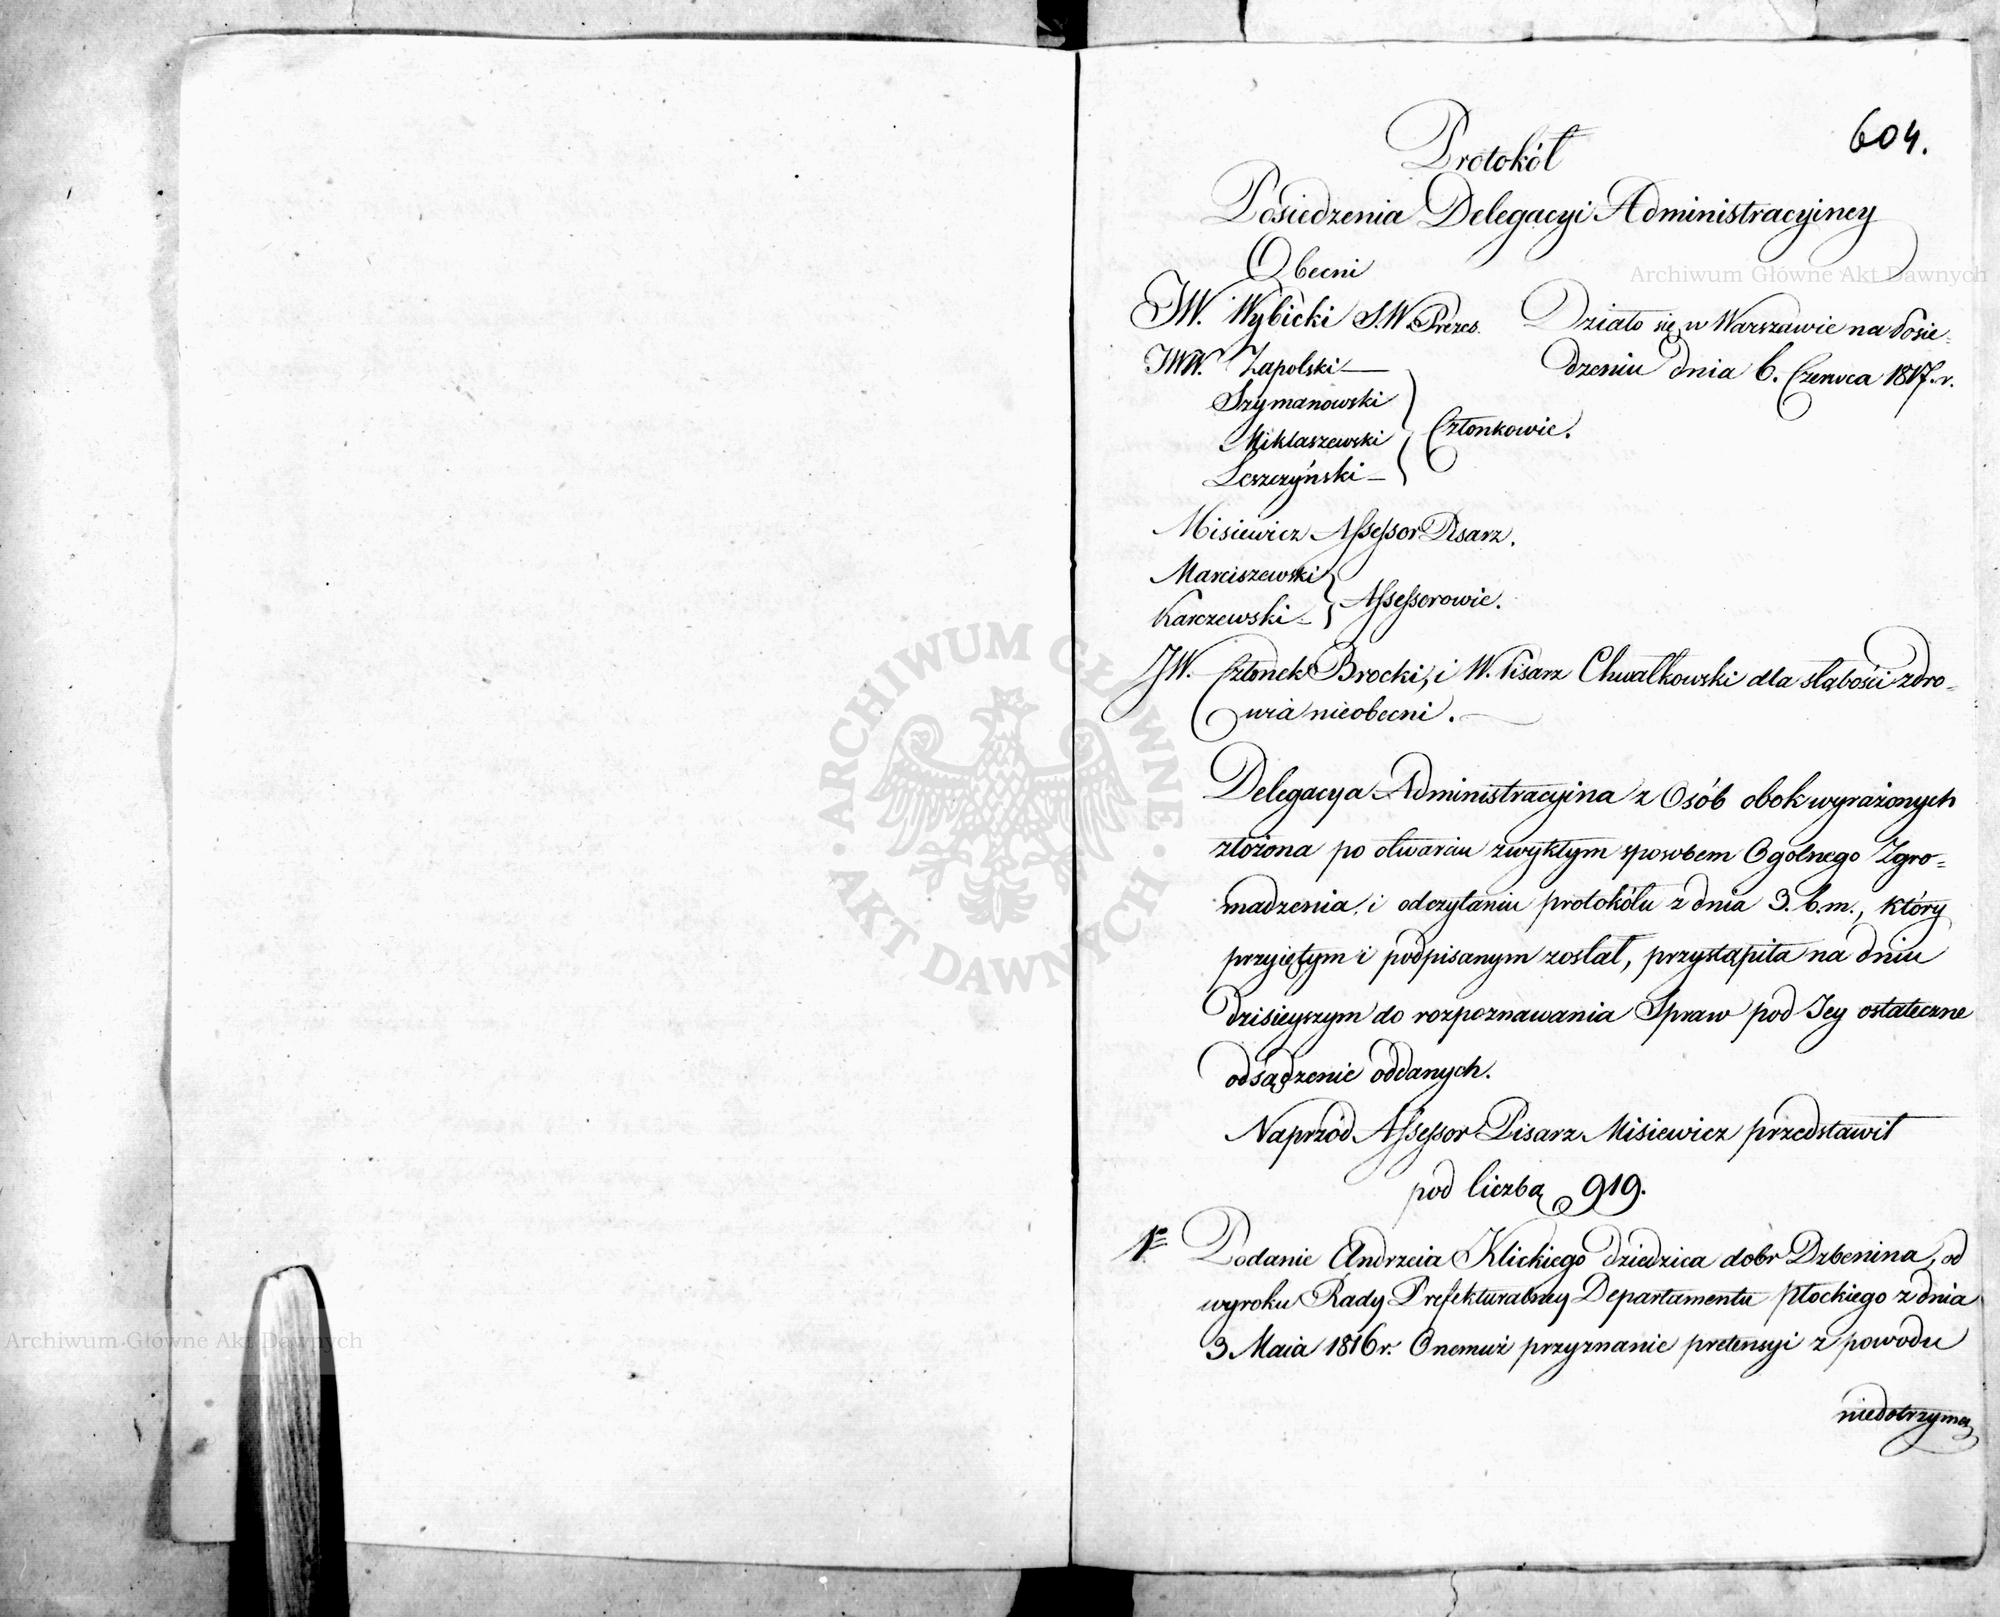 604.
Protokół
Posiedzenia Delegacyi Administracyiney
Obecni
JW. Wybicki S.W. Prezes.
Działo się w Warszawie na Posie-
dzeniu dnia 6. Czerwca 1817. r.
JWW. Zapolski
Szymanowski
Miklaszewski
Leszczyński
Członkowie.
Misiewicz Assessor Pisarz.
Marciszewski
Karczewski
Assessorowie.
JW. Członek Brocki, i W. Pisarz Chwalkowski dla słabości zdro-
wia nieobecni.
Delegacya Administracyina z Osób obok wyrażonych
złożona po otwarciu zwykłym sposobem Ogolnego Zgro-
madzenia, i odczytaniu protokółu z dnia 3. b.m., który
przyiętym i podpisanym został, przystąpiła na dniu
dzisieyszym do rozpoznawania Spraw pod Jey ostateczne
odsądzenie oddanych.
Naprzód Assessor Pisarz Misiewicz przedstawił
pod liczbą 919.
1. Podanie Andrzeia Klickiego dziedzica dobr Dzbenina, od
wyroku Rady Prefekturalney Departamentu Płockiego z dnia
3 Maia 1816 r. Onemuż przyznanie pretensyi z powodu
niedotrzyma
Archiwum Główne Akt Dawnych
ARCHIWUM GŁÓWNE AKT DAWNYCH
Archiwum Główne Akt Dawnych